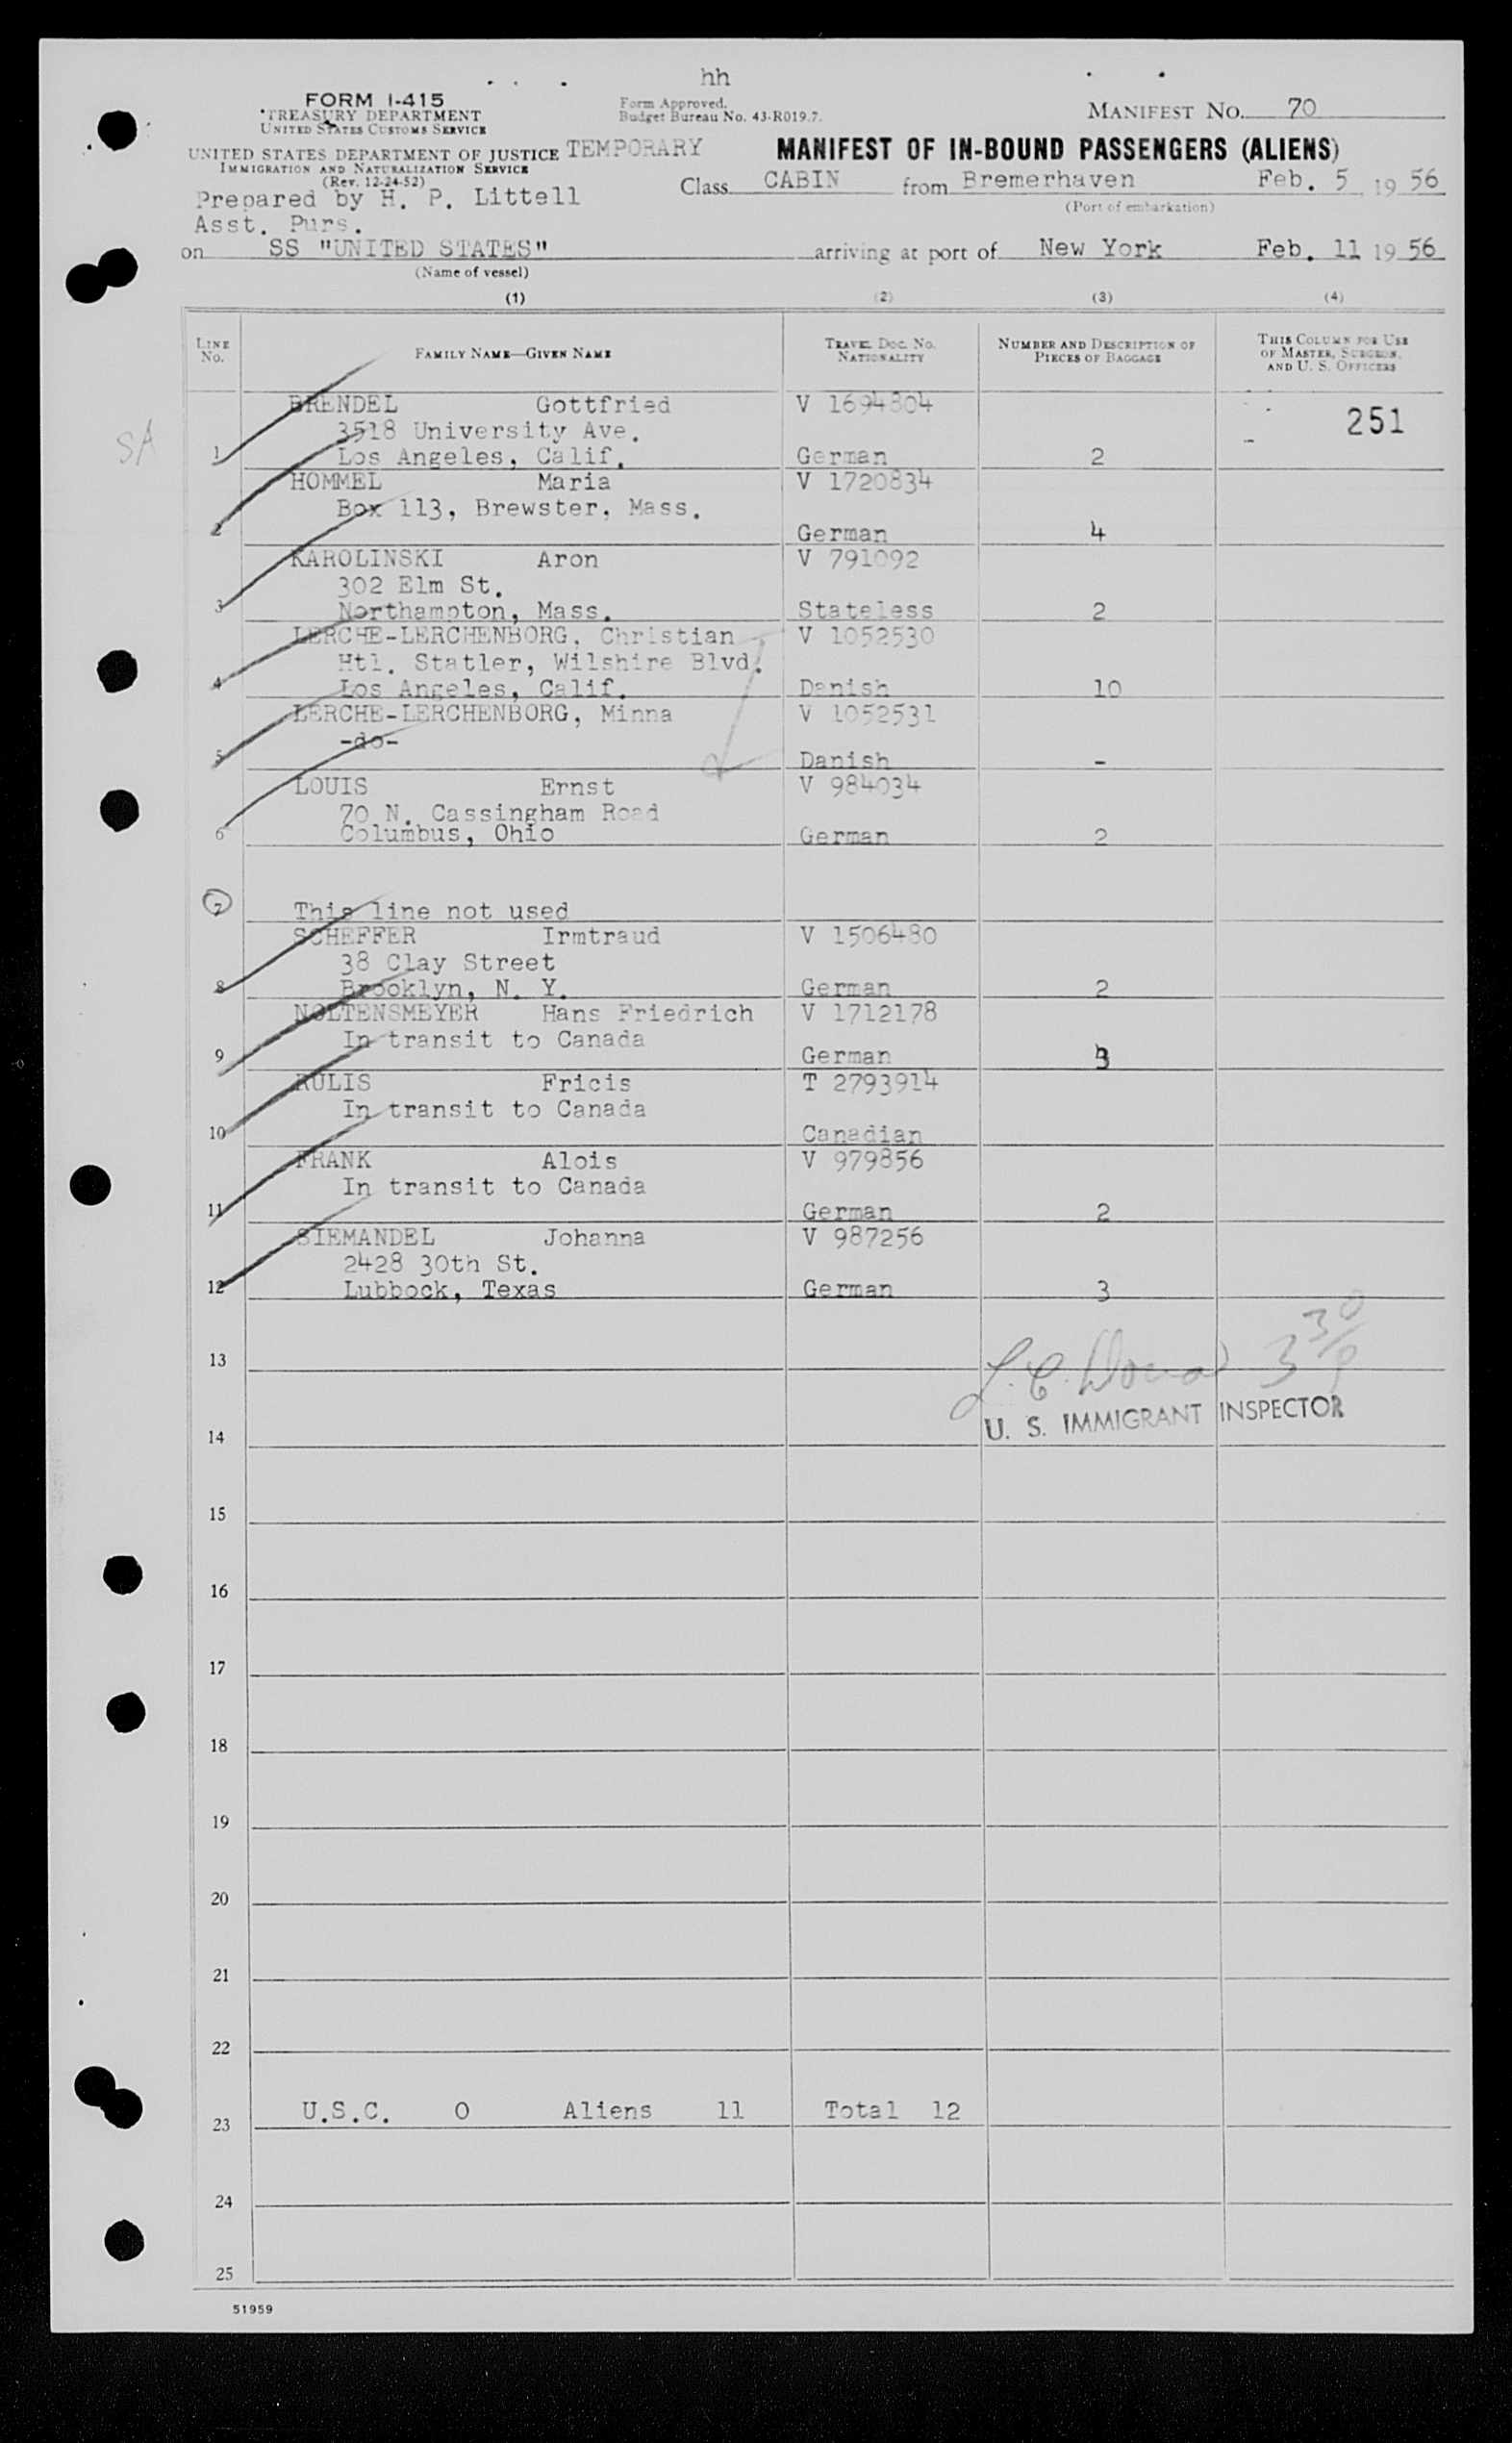 hh
FORM I-415
TREASURY DEPARTMENT
UNITED STATES CUSTOMS SERVICE
Form Approved.
Budget Bureau No. 43-R019.7.
MANIFEST NO. 70
UNITED STATES DEPARTMENT OF JUSTICE TEMPORARY
IMMIGRATION AND NATURALIZATION SERVICE
(Rev. 12-24-52)
MANIFEST OF IN-BOUND PASSENGERS (ALIENS)
Prepared by H. P. Littell
Asst. Purs.
Class CABIN from Bremerhaven Feb. 5, 19 56
(Port of embarkation)
on SS "UNITED STATES" arriving at port of New York Feb. 11 19 56
(Name of vessel)
(1) (2) (3) (4)
LINE No. FAMILY NAME—GIVEN NAME TRAVEL DOC. NO. NATIONALITY NUMBER AND DESCRIPTION OF PIECES OF BAGGAGE THIS COLUMN FOR USE OF MASTER, SURGEON, AND U. S. OFFICERS
BRENDEL Gottfried V 1694804
3518 University Ave. 251
SA 1 Los Angeles, Calif. German 2
HOMMEL Maria V 1720834
Box 113, Brewster, Mass.
2 German 4
KAROLINSKI Aron V 791092
302 Elm St.
3 Northampton, Mass. Stateless 2
LERCHE-LERCHENBORG, Christian V 1052530
Htl. Statler, Wilshire Blvd.
4 Los Angeles, Calif. Danish 10
LERCHE-LERCHENBORG, Minna V 1052531
-do-
5 Danish -
LOUIS Ernst V 984034
70 N. Cassingham Road
6 Columbus, Ohio German 2
7 This line not used
SCHEFFER Irmtraud V 1506480
38 Clay Street
8 Brooklyn, N. Y. German 2
NOLTENSMEYER Hans Friedrich V 1712178
In transit to Canada
9 German 3
KULIS Fricis T 2793914
In transit to Canada
10 Canadian
FRANK Alois V 979856
In transit to Canada
11 German 2
SIEMANDEL Johanna V 987256
2428 30th St.
12 Lubbock, Texas German 3
13 330
U. S. IMMIGRANT INSPECTOR
14
15
16
17
18
19
20
21
22
23 U.S.C. 0 Aliens 11 Total 12
24
25
51959